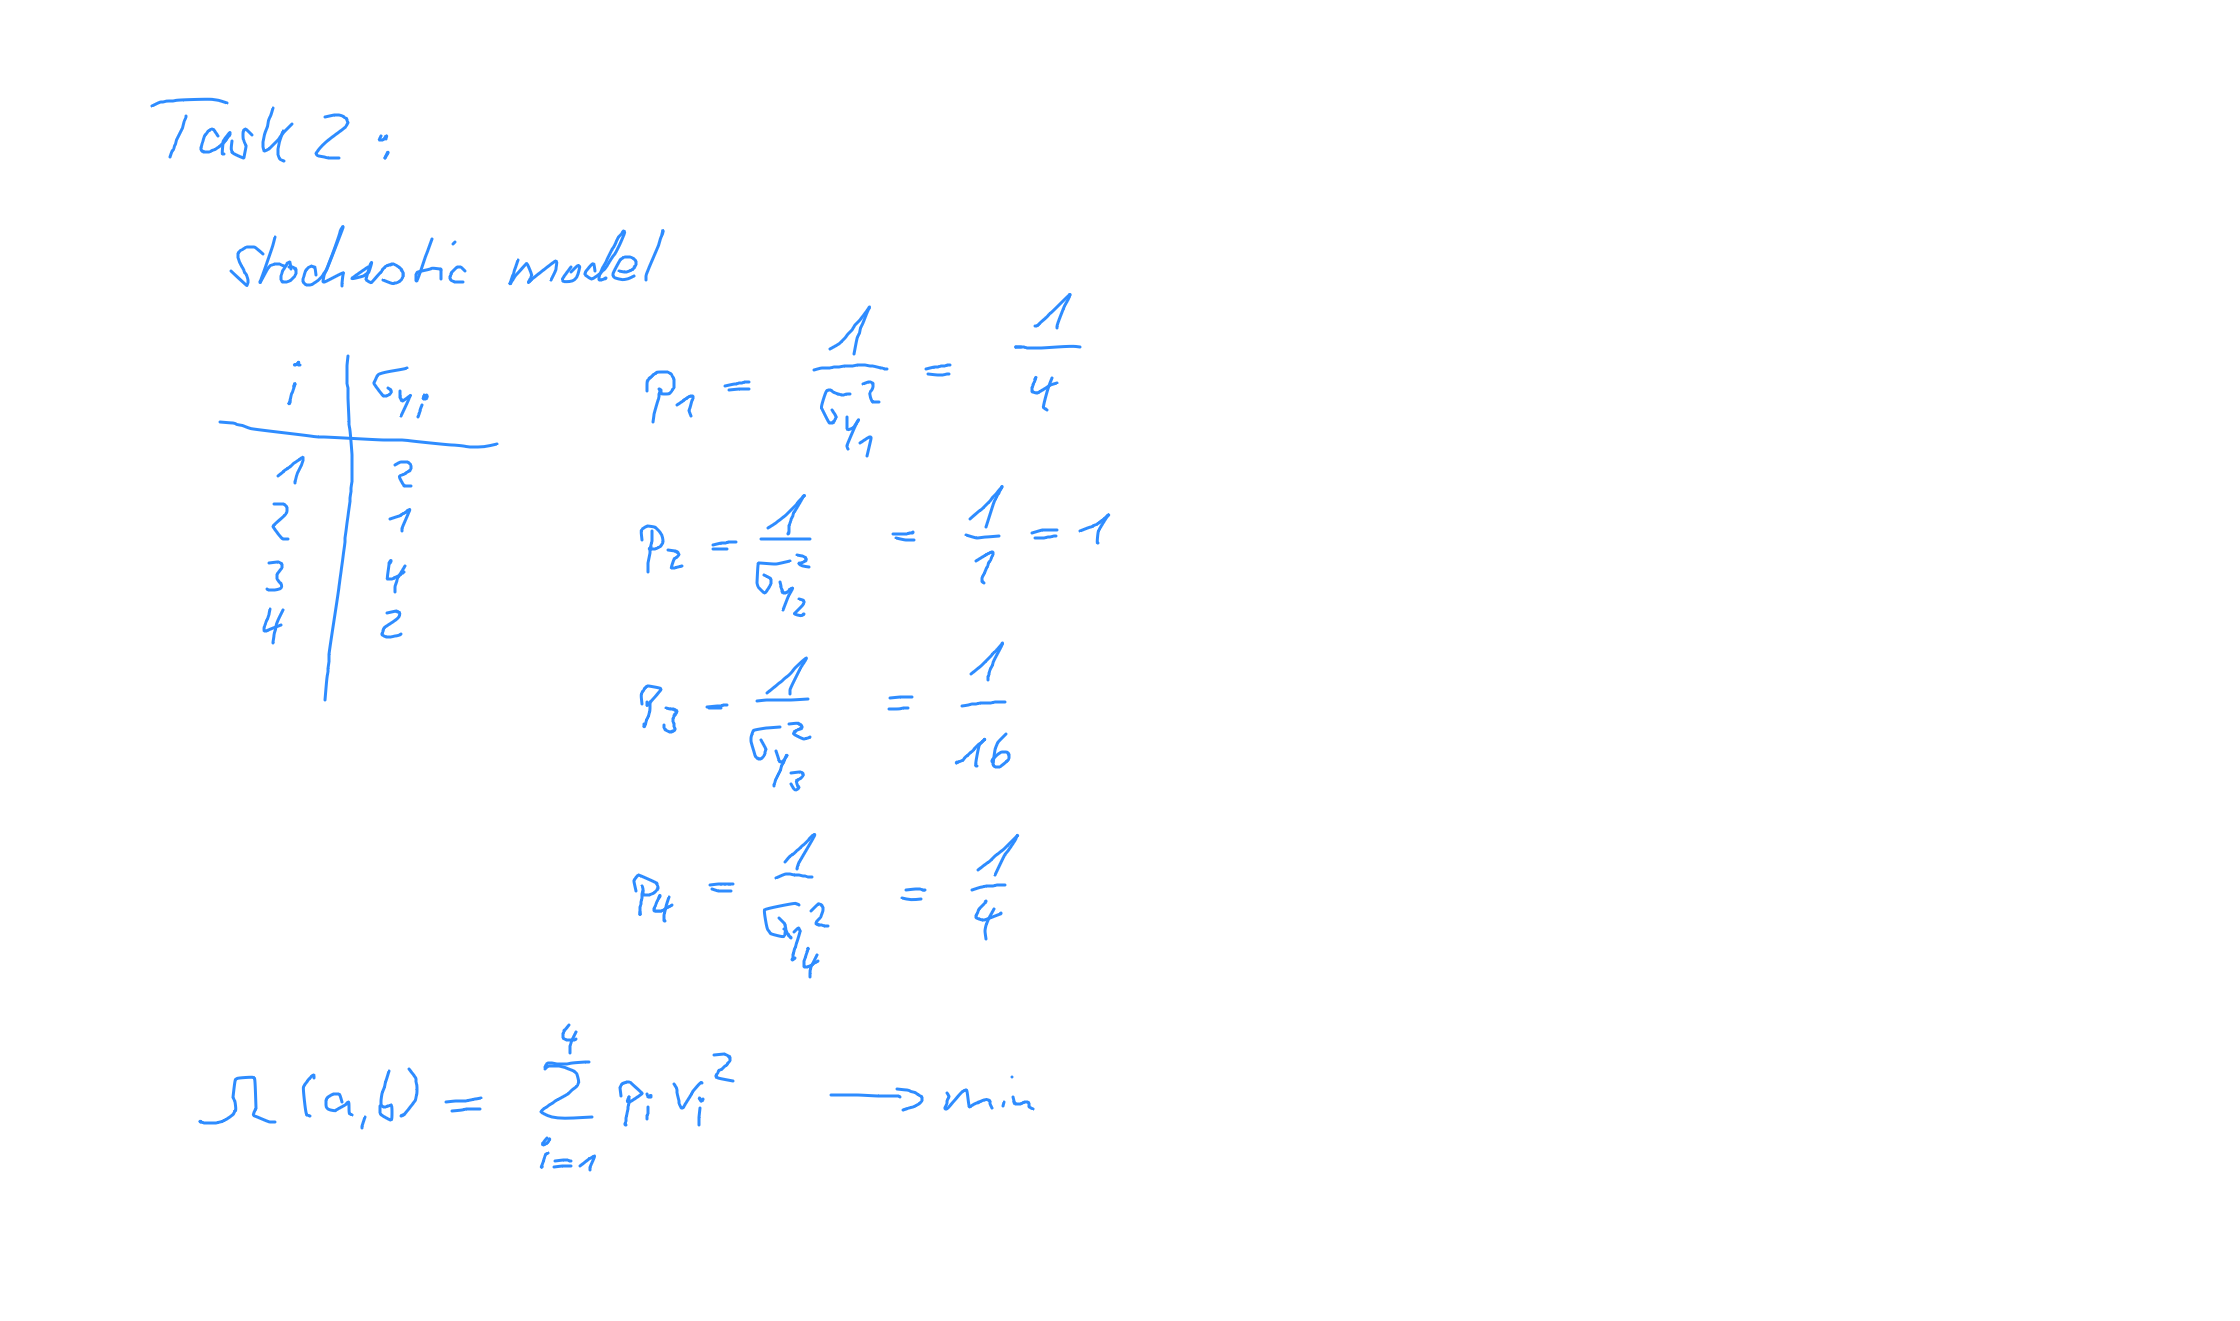 Task 2:
Stochastic model
i | σ_{y_i}
1 | 2
2 | 1
3 | 4
4 | 2
p_1 = 1/σ_{y_1}^2 = 1/4
p_2 = 1/σ_{y_2}^2 = 1/1 = 1
p_3 = 1/σ_{y_3}^2 = 1/16
p_4 = 1/σ_{y_4}^2 = 1/4
Ω(a,b) = ∑_{i=1}^{4} p_i v_i^2 → min